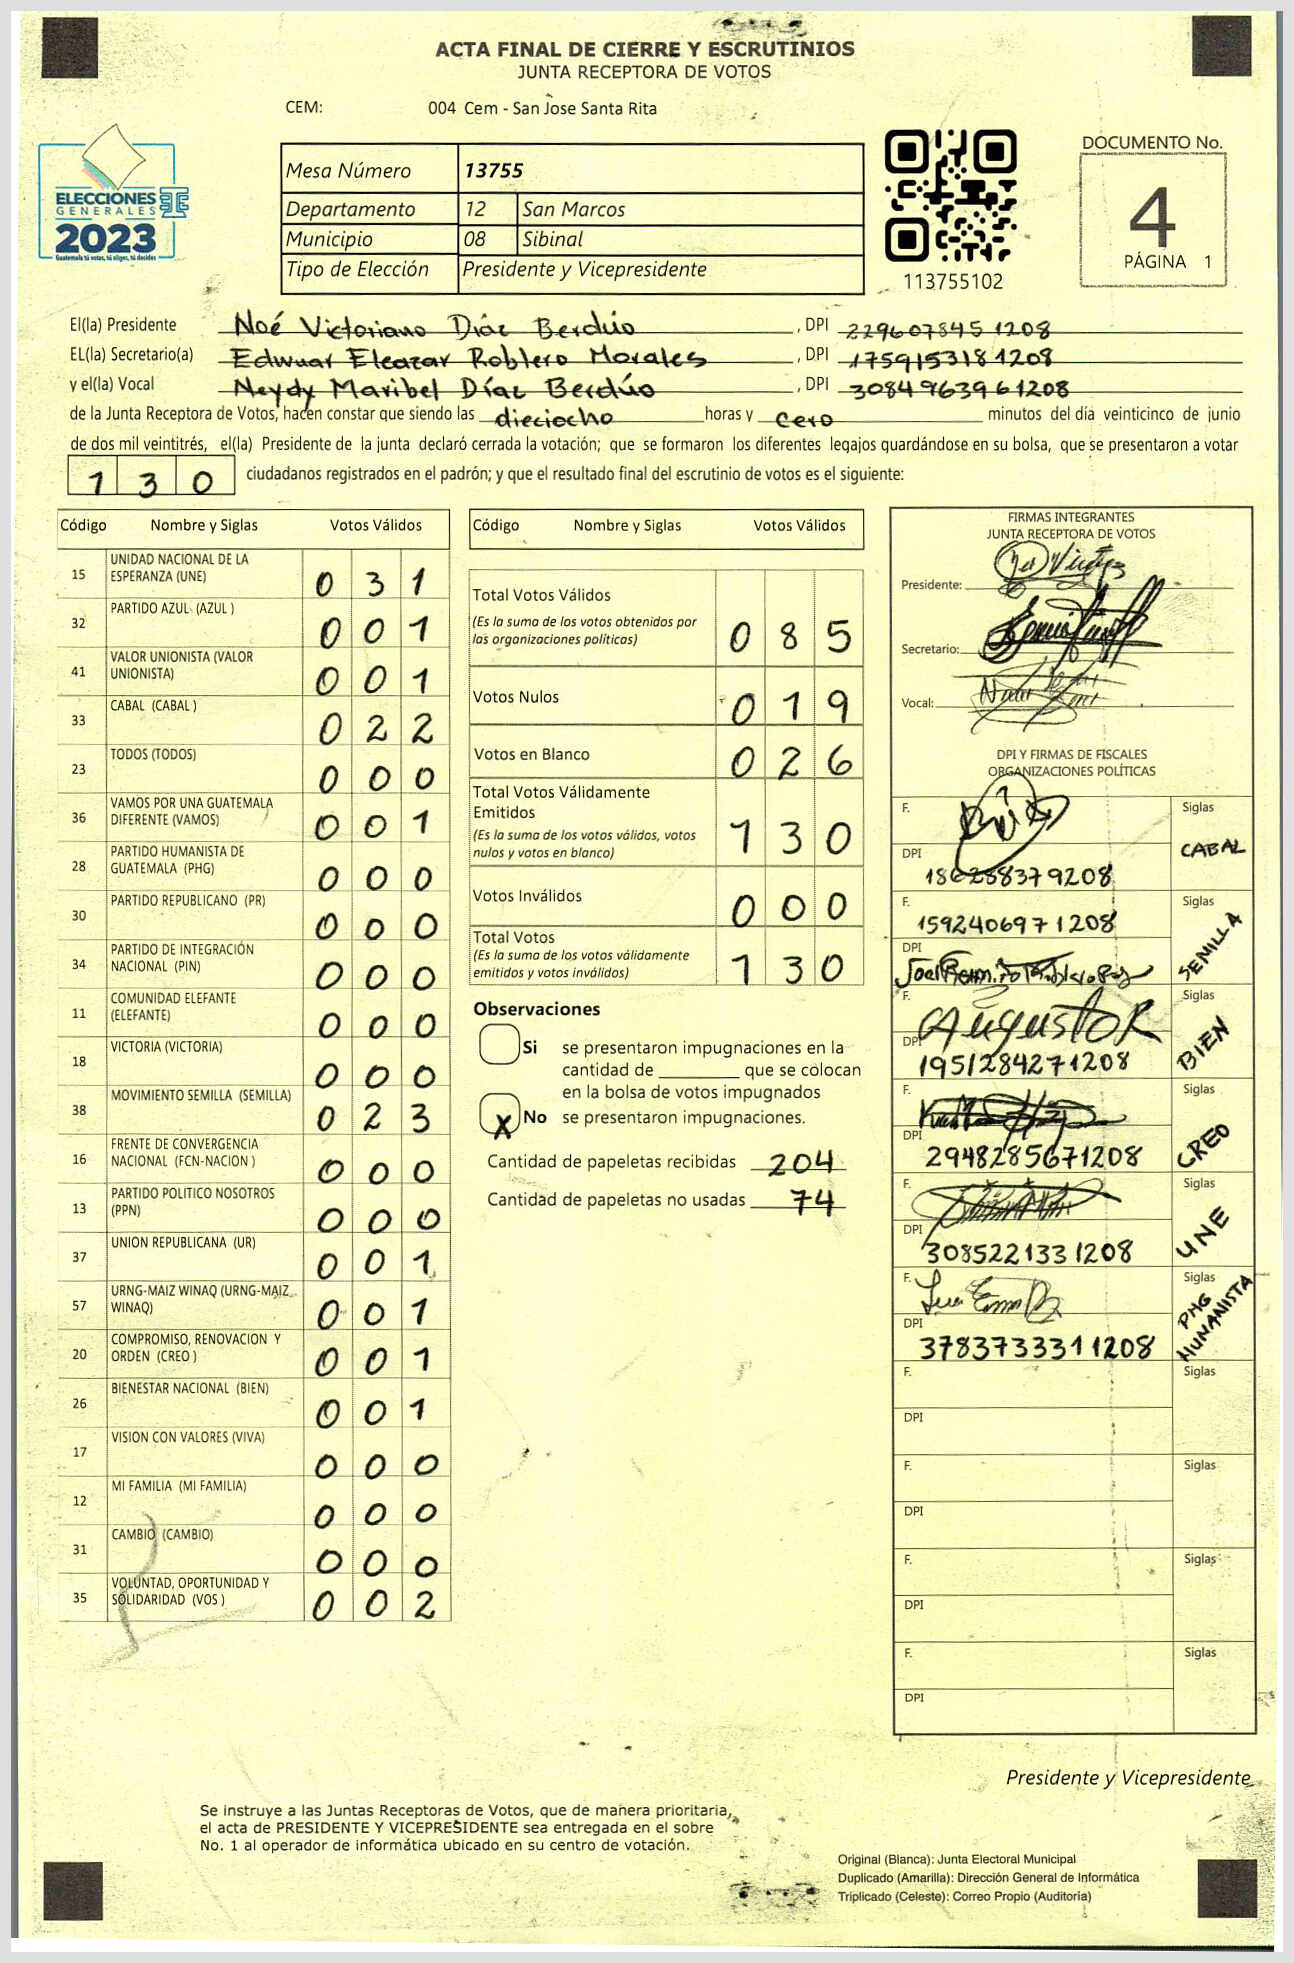 ACTA FINAL DE CIERRE Y ESCRUTINIOS
JUNTA RECEPTORA DE VOTOS
CEM: 004 Cem - San Jose Santa Rita
ELECCIONES
GENERALES
2023
Guatemala tú votas, tú eliges, tú decides
Mesa Número 13755
Departamento 12 San Marcos
Municipio 08 Sibinal
Tipo de Elección Presidente y Vicepresidente
113755102
DOCUMENTO No.
4
PÁGINA 1
El(la) Presidente Noé Victoriano Díaz Berdúo, DPI 229607845 1208
EL(la) Secretario(a) Edwuar Eleazar Roblero Morales, DPI 175915318 1208
y el(la) Vocal Neydy Maribel Díaz Berdúo, DPI 308496396 1208
de la Junta Receptora de Votos, hacen constar que siendo las dieciocho horas y cero minutos del día veinticinco de junio
de dos mil veintitrés, el(la) Presidente de la junta declaró cerrada la votación; que se formaron los diferentes legajos guardándose en su bolsa, que se presentaron a votar
1 3 0 ciudadanos registrados en el padrón; y que el resultado final del escrutinio de votos es el siguiente:
Código Nombre y Siglas Votos Válidos
15 UNIDAD NACIONAL DE LA ESPERANZA (UNE) 0 3 1
32 PARTIDO AZUL (AZUL ) 0 0 1
41 VALOR UNIONISTA (VALOR UNIONISTA) 0 0 1
33 CABAL (CABAL ) 0 2 2
23 TODOS (TODOS) 0 0 0
36 VAMOS POR UNA GUATEMALA DIFERENTE (VAMOS) 0 0 1
28 PARTIDO HUMANISTA DE GUATEMALA (PHG) 0 0 0
30 PARTIDO REPUBLICANO (PR) 0 0 0
34 PARTIDO DE INTEGRACIÓN NACIONAL (PIN) 0 0 0
11 COMUNIDAD ELEFANTE (ELEFANTE) 0 0 0
18 VICTORIA (VICTORIA) 0 0 0
38 MOVIMIENTO SEMILLA (SEMILLA) 0 2 3
16 FRENTE DE CONVERGENCIA NACIONAL (FCN-NACION ) 0 0 0
13 PARTIDO POLITICO NOSOTROS (PPN) 0 0 0
37 UNION REPUBLICANA (UR) 0 0 1
57 URNG-MAIZ WINAQ (URNG-MAIZ WINAQ) 0 0 1
20 COMPROMISO, RENOVACION Y ORDEN (CREO ) 0 0 1
26 BIENESTAR NACIONAL (BIEN) 0 0 1
17 VISION CON VALORES (VIVA) 0 0 0
12 MI FAMILIA (MI FAMILIA) 0 0 0
31 CAMBIO (CAMBIO) 0 0 0
35 VOLUNTAD, OPORTUNIDAD Y SOLIDARIDAD (VOS ) 0 0 2
Código Nombre y Siglas Votos Válidos
Total Votos Válidos
(Es la suma de los votos obtenidos por
las organizaciones políticas) 0 8 5
Votos Nulos 0 1 9
Votos en Blanco 0 2 6
Total Votos Válidamente
Emitidos
(Es la suma de los votos válidos, votos
nulos y votos en blanco) 1 3 0
Votos Inválidos 0 0 0
Total Votos
(Es la suma de los votos válidamente
emitidos y votos inválidos) 1 3 0
Observaciones
Si se presentaron impugnaciones en la
cantidad de ________ que se colocan
en la bolsa de votos impugnados
X No se presentaron impugnaciones.
Cantidad de papeletas recibidas 204
Cantidad de papeletas no usadas 74
FIRMAS INTEGRANTES
JUNTA RECEPTORA DE VOTOS
Presidente:
Secretario:
Vocal:
DPI Y FIRMAS DE FISCALES
ORGANIZACIONES POLÍTICAS
F. Siglas
CABAL
DPI
F. Siglas
159240697 1208
DPI SEMILLA
F. Siglas
AugustoR
DPI 1951284271208 BIEN
F. Siglas
DPI 2948285671208 CREO
F. Siglas
DPI 308522133 1208 UNE
F. Siglas
DPI 3783733311208 PHG HUMANISTA
F. Siglas
DPI
F. Siglas
DPI
F. Siglas
DPI
F. Siglas
DPI
Presidente y Vicepresidente
Se instruye a las Juntas Receptoras de Votos, que de manera prioritaria,
el acta de PRESIDENTE Y VICEPRESIDENTE sea entregada en el sobre
No. 1 al operador de informática ubicado en su centro de votación.
Original (Blanca): Junta Electoral Municipal
Duplicado (Amarilla): Dirección General de Informática
Triplicado (Celeste): Correo Propio (Auditoría)